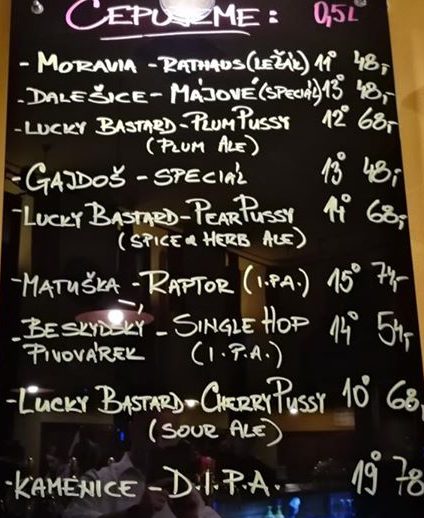 ČEPUJEME: 0,5L
- MORAVIA - RATHAUS (LEŽÁK) 11° 48,-
- DALEŠICE - MÁJOVÉ (SPECIÁL) 13° 48,-
- LUCKY BASTARD - PLUM PUSSY 12° 68,-
(PLUM ALE)
- GAJDOŠ - SPECIÁL 13° 48,-
- LUCKY BASTARD - PEAR PUSSY 11° 68,-
(SPICE & HERB ALE)
- MATUŠKA - RAPTOR (I.P.A.) 15° 74,-
- BESKYDSKÝ - SINGLE HOP 14° 54,-
PIVOVÁREK (I.P.A.)
- LUCKY BASTARD - CHERRY PUSSY 10° 68,
(SOUR ALE)
- KAMENICE - D.I.P.A. 19° 78